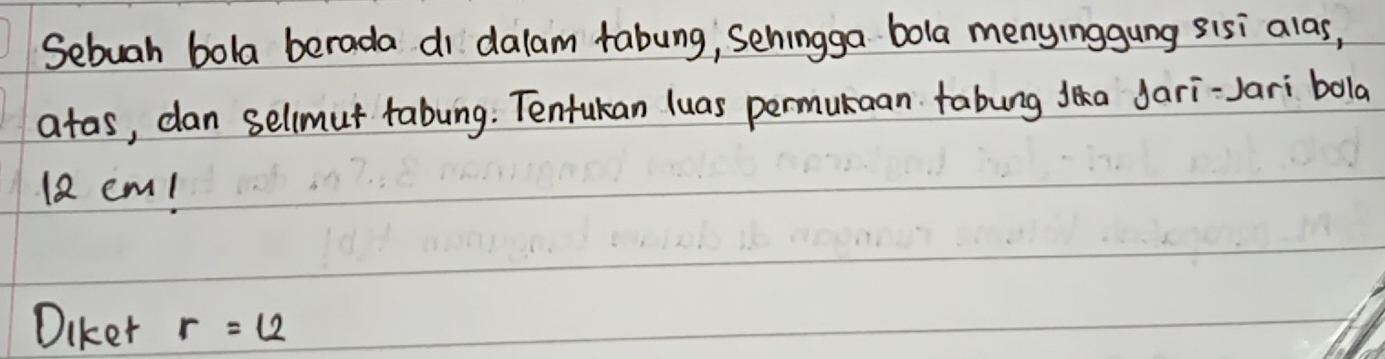 Sebuah bola berada di dalam tabung, sehingga bola menyinggung sisi alas,
atas, dan selimut tabung. Tentukan luas permukaan tabung jika Jari-Jari bola
12 cm!
Diket r = 12